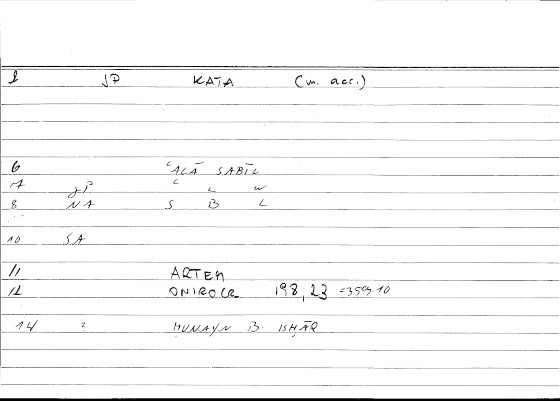 1 JP KATA (m. acc.)
6 ʿALĀ SABĪL
7 JP ʿ L W
8 NA S B L
10 SA
11 ARTEM
12 ONIROCR 198,23 =359.10
14 2 ḤUNAYN B. ISḤĀQ